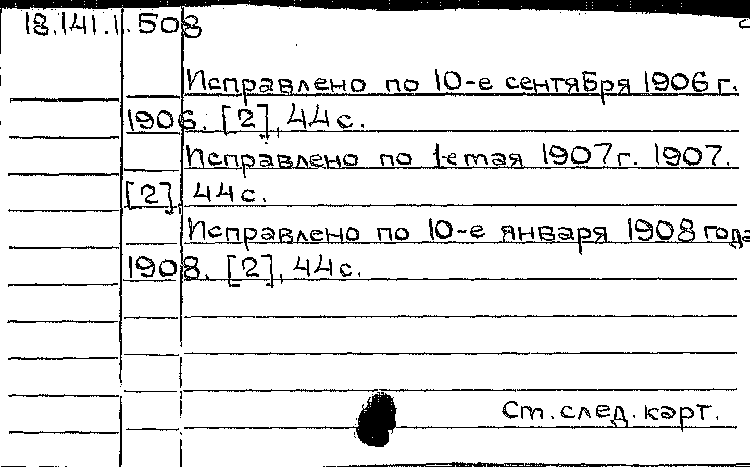 18.141.1.508
Исправлено по 10-е сентября 1906 г.
1906. [2], 44 с.
Исправлено по 1-е мая 1907 г. 1907.
[2], 44 с.
Исправлено по 10-е января 1908 года
1908. [2], 44 с.
Ст. след. карт.